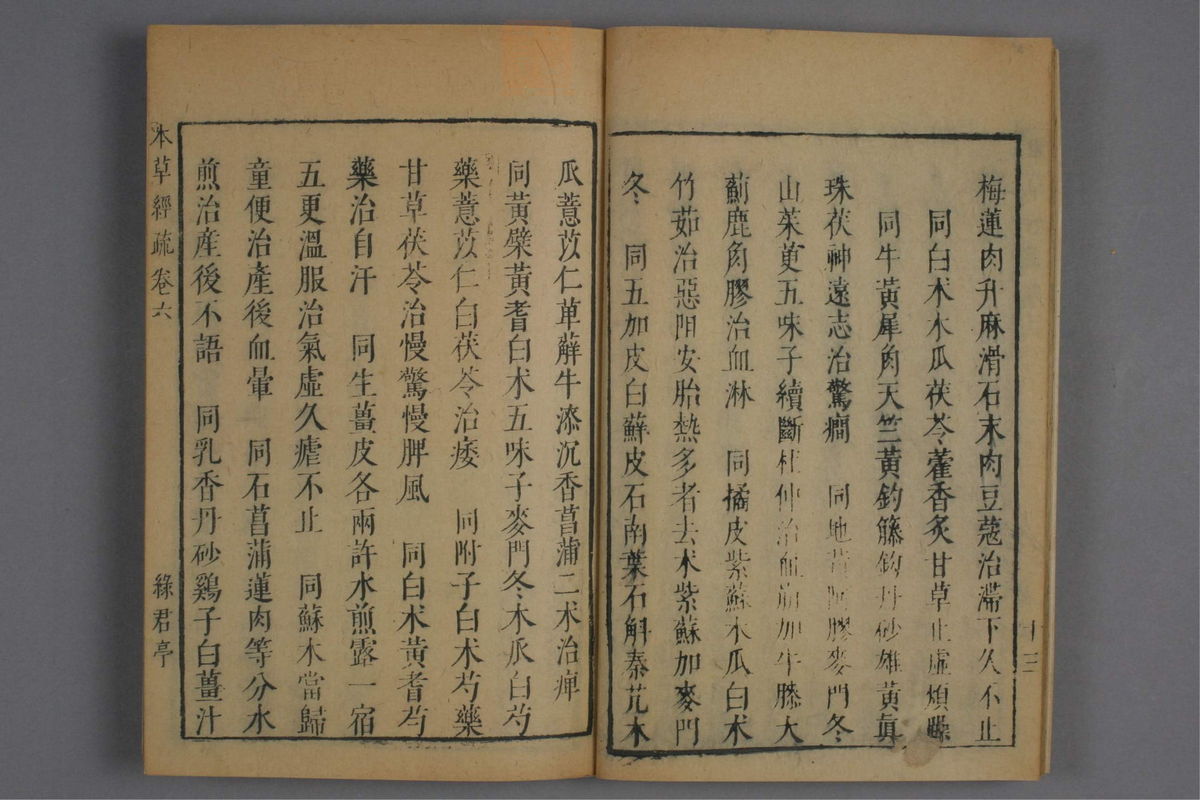 梅蓮肉升麻滑石末肉豆蔻治滯下久不止
同白术木瓜茯苓藿香炙甘草止虛煩躁
同牛黃犀角天竺黃釣藤鈎丹砂雄黃眞
珠茯神遠志治驚癎　同地黃阿膠麥門冬
山茱萸五味子續斷杜仲治血崩加牛膝大
薊鹿角膠治血淋　同橘皮紫蘇木瓜白术
竹茹治惡阻安胎熱多者去术紫蘇加麥門
冬　同五加皮白蘚皮石南葉石斛秦艽木
十三
瓜薏苡仁萆薢牛漆沉香菖蒲二术治痺
同黃檗黃耆白术五味子麥門冬木瓜白芍
藥薏苡仁白茯苓治痿　同附子白术芍藥
甘草茯苓治慢驚慢脾風　同白术黃耆芍
藥治自汗　同生薑皮各兩許水煎露一宿
五更溫服治氣虛久瘧不止　同蘇木當歸
童便治產後血暈　同石菖蒲蓮肉等分水
煎治產後不語　同乳香丹砂鷄子白薑汁
本草經疏卷六
綠君亭